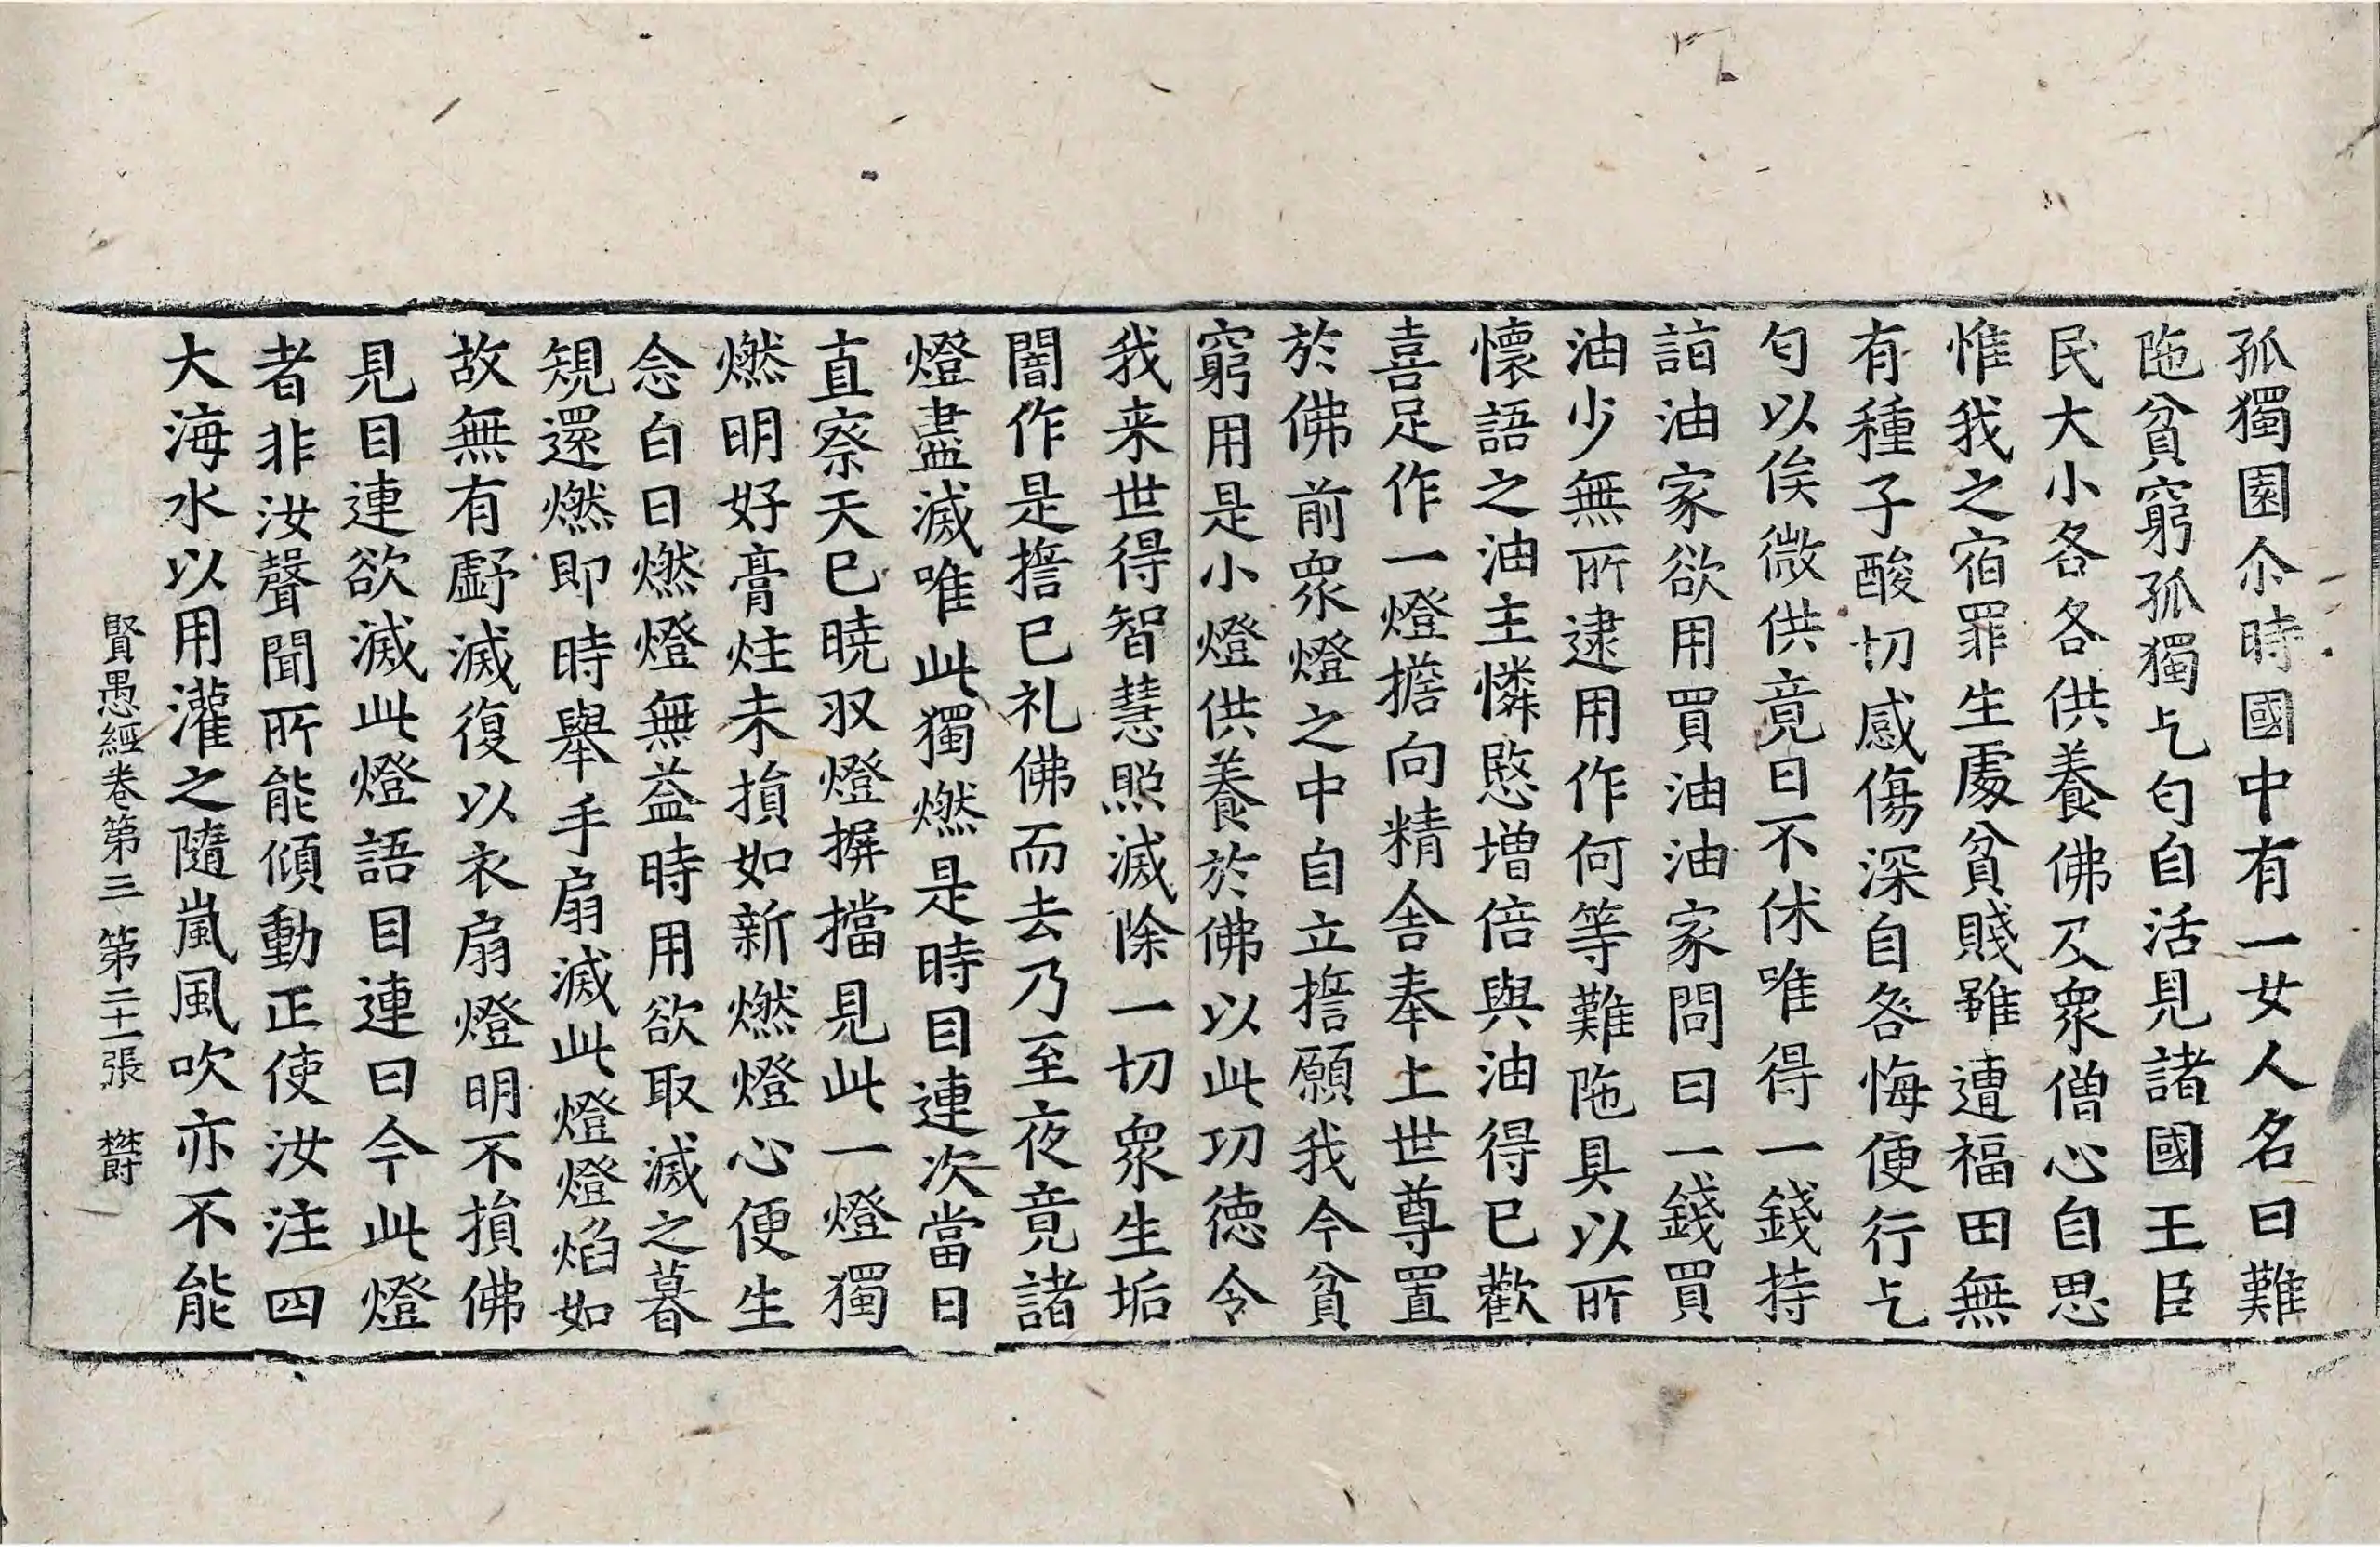 孤獨園尒時國中有一女人名曰難
陁貧窮孤獨乞匄自活見諸國王臣
民大小各各供養佛及衆僧心自思
惟我之宿罪生處貧賤雖遭福田無
有種子酸切感傷深自咎悔便行乞
匄以俟微供竟日不休唯得一錢持
詣油家欲用買油油家問曰一錢買
油少無所逮用作何等難陁具以所
懷語之油主憐愍增倍與油得已歡
喜足作一燈擔向精舍奉上世尊置
於佛前衆燈之中自立誓願我今貧
窮用是小燈供養於佛以此功德令
我来世得智慧照滅除一切衆生垢
闇作是誓已礼佛而去乃至夜竟諸
燈盡滅唯此獨燃是時目連次當日
直察天已曉収燈摒擋見此一燈獨
燃明好膏炷未損如新燃燈心便生
念白日燃燈無益時用欲取滅之暮
規還燃即時舉手扇滅此燈燈焰如
故無有虧滅復以衣扇燈明不損佛
見目連欲滅此燈語目連曰今此燈
者非汝聲聞所能傾動正使汝注四
大海水以用灌之隨嵐風吹亦不能
賢愚經卷第三 第二十一張 欝